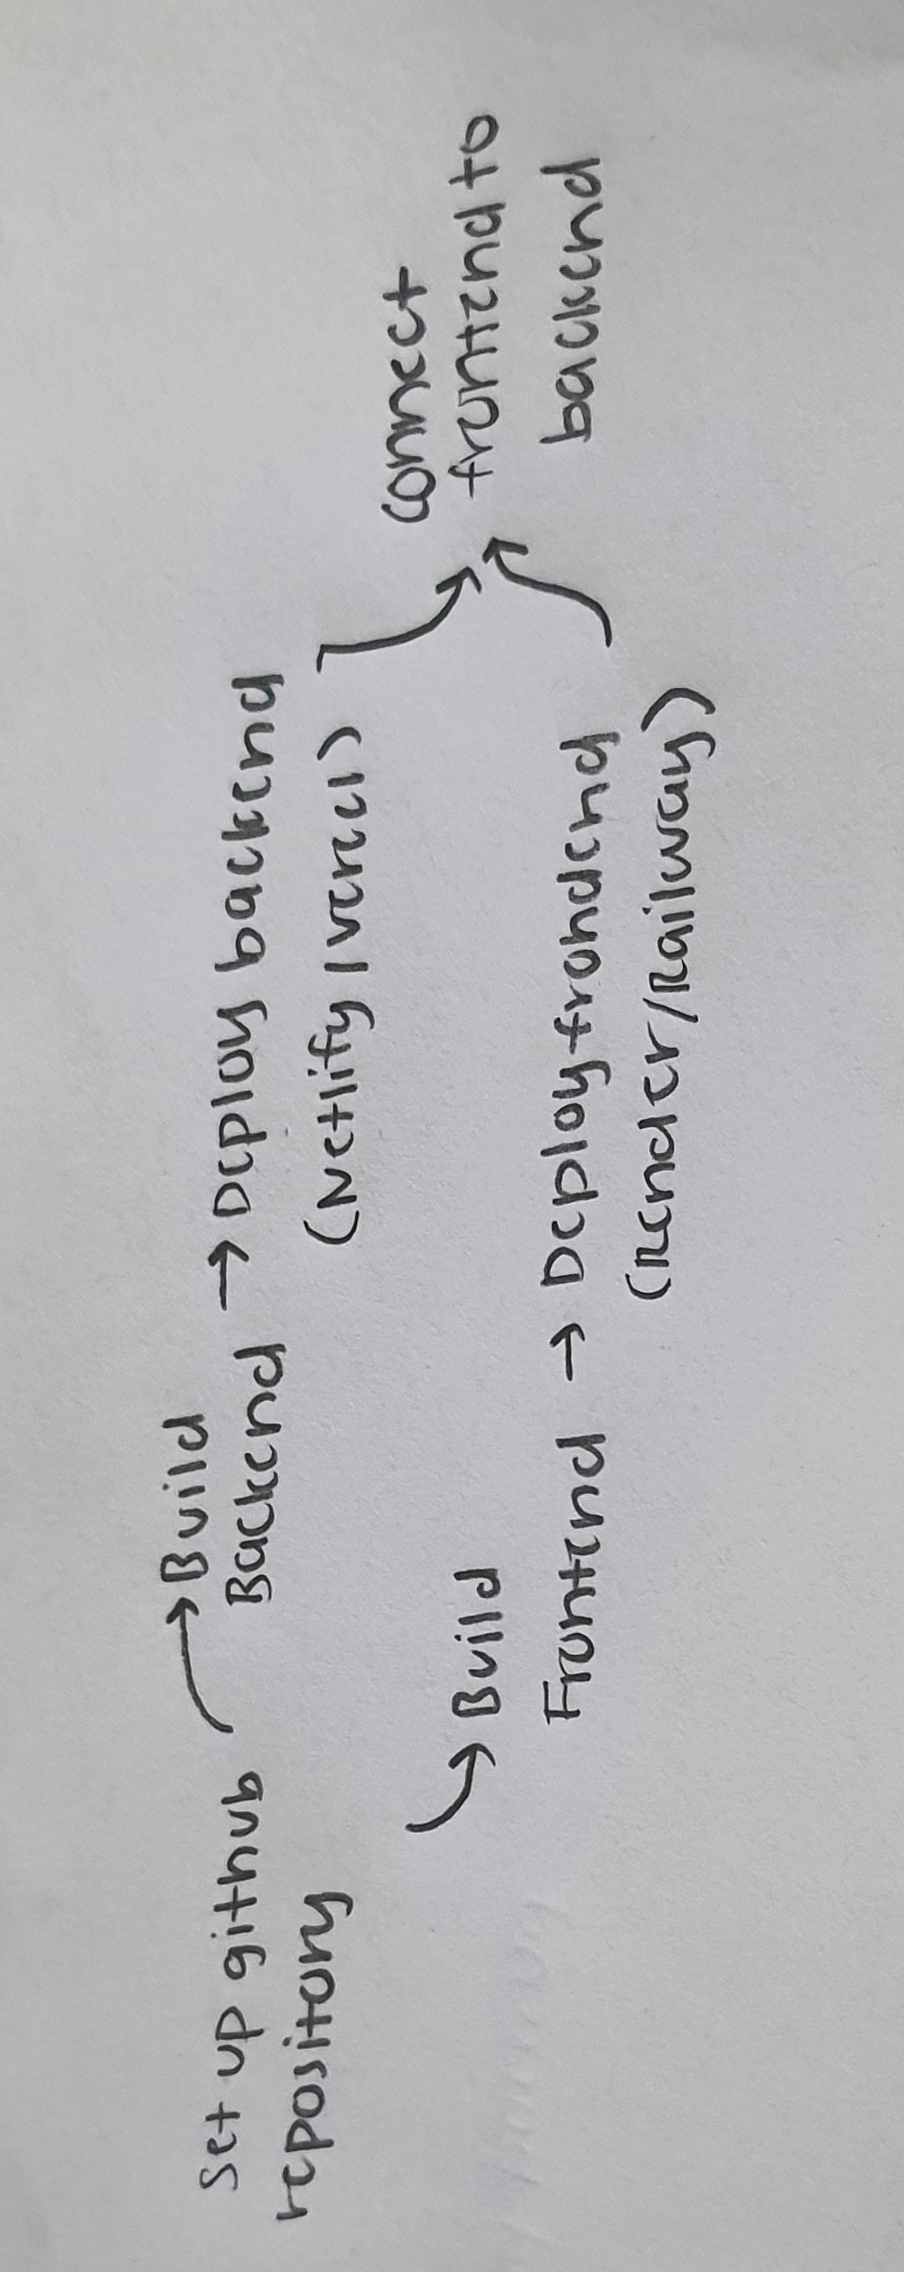 set up github
repository
Build
Backend
Deploy backend
(Netlify / vercel)
Build
Frontend
Deploy frondend
(Render/Railway)
connect
frontend to
backend